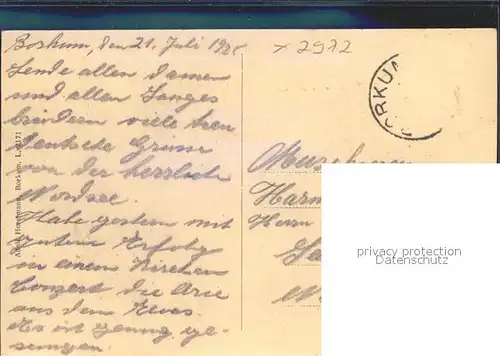 Borkum, den 21. Juli 1925
x 2972
Sende allen Damen
und allen Sanges
brüdern viele treu
deutsche Grüsse
von der herrlichen
Nordsee.
Habe gestern mit
gutem Erfolg
in einem Kirchen
Konzert die Arie
aus dem Elias
Es ist genug ge-
sungen.
ORKU
Herrn
privacy protection
Datenschutz